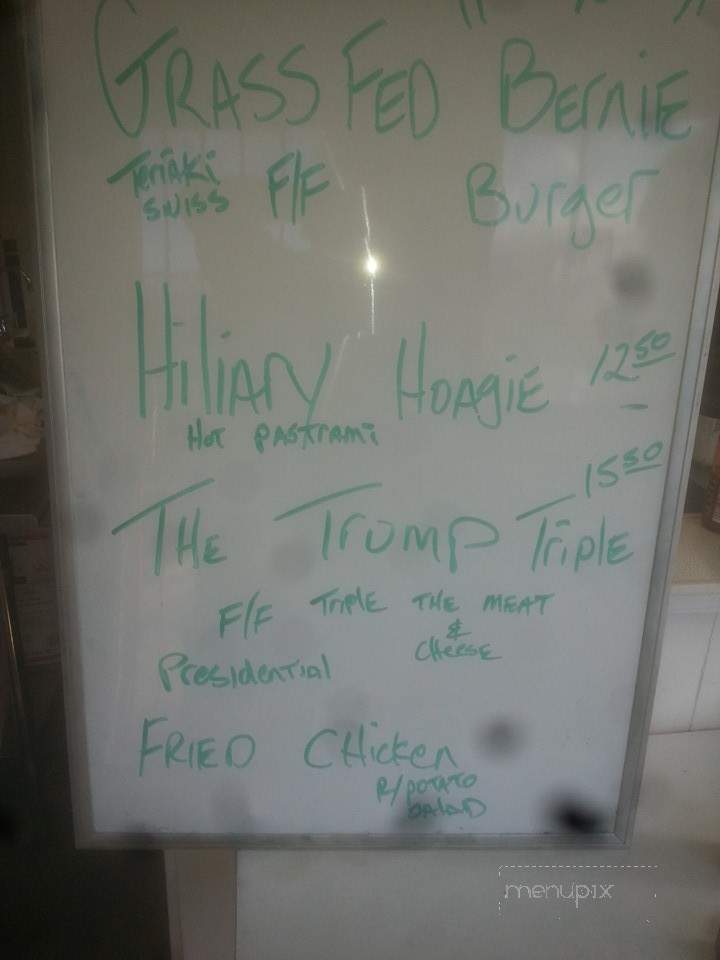 GRASS FED BERNIE
TERIAKI F/F Burger
SWISS
Hillary HOAGIE 12.50
HOT PASTRAMI
15.50
THE TRUMP TRIPLE
F/F TRIPLE THE MEAT
&
CHEESE
Presidential
FRIED CHICKEN
R/POTATO
SALAD
menupix